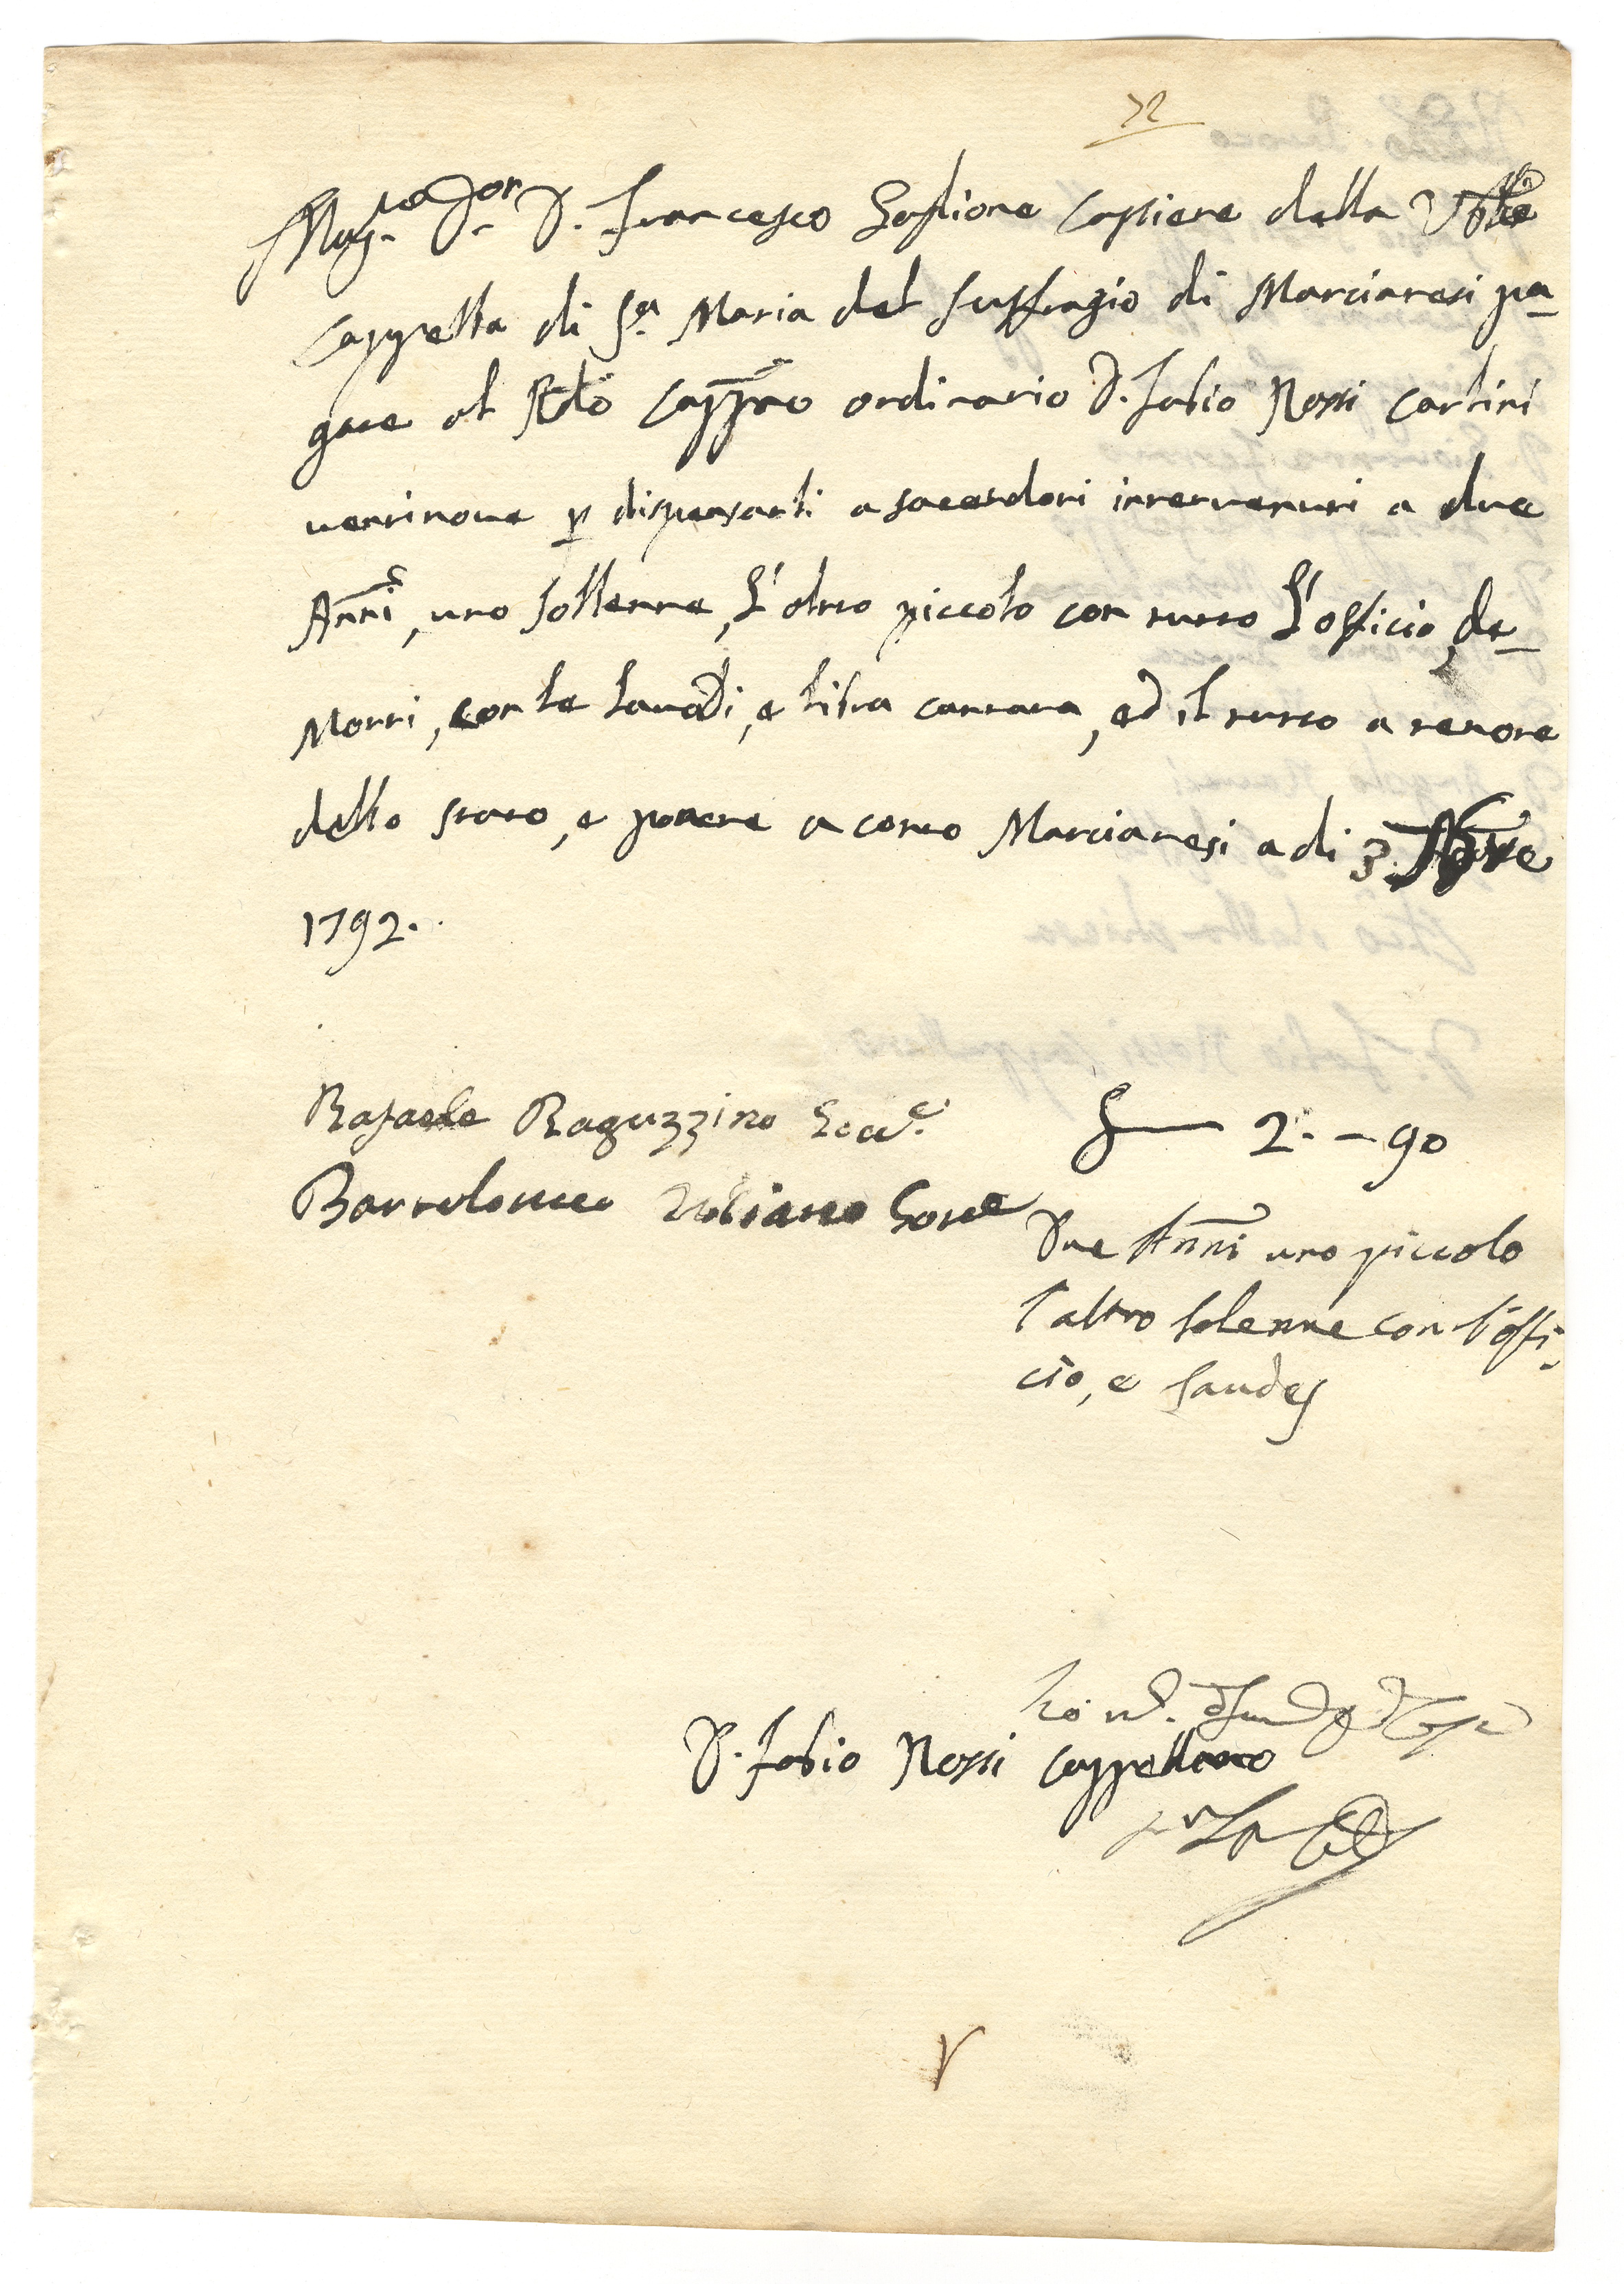 72
Mag.co Sor D. Francesco Gaglione Cassiere della Vble
Cappella di S.a Maria del suffragio di Marcianesi pa-
gare al Rdo Cappno ordinario D. Fabio Rossi carlini
ventinove p dispensarli a sacerdoti intervenuti a due
Anni, uno sollenne, L'altro piccolo con tutto L'officio de-
Morti, con le Laudi, e libra cantata, ed il tutto a tenore
dello stato, e ponere a conto Marcianesi a di 3 9bre
1792.
Rafaele Raguzzino Eco.
Bartolomeo Gove
2.-90
Due Anni uno piccolo
l'altro solenne con l'offi-
cio, e Laudes
D. Fabio Rossi Cappellano